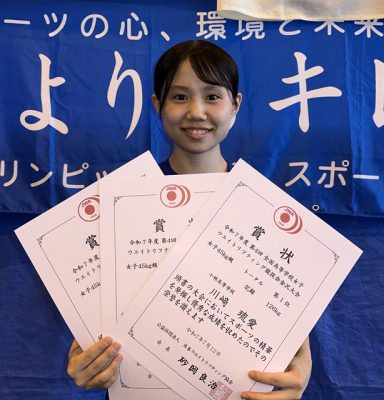 ーツの心、環境と未来
よりキレ
リンピッ
スポー
す。
JWA
賞状
令和7年度 第4回
ウエイトリフティ
女子45kg級
賞
令和7年度 第4回
ウエイトリフテ
女子45kg級
賞状
令和7年度 第4回 全国高等学校女子
ウエイトリフティング競技会金沢大会
女子45kg級
トータル 第1位
記録 126kg
小林高等学校
川﨑 琉愛
頭書の大会においてスポーツの精華
を発揮し優秀な成績を収めたのでその
栄誉を讃えます
令和7年7月12日
公益社団法人 日本ウエイトリフティング協会
会長 砂岡良治